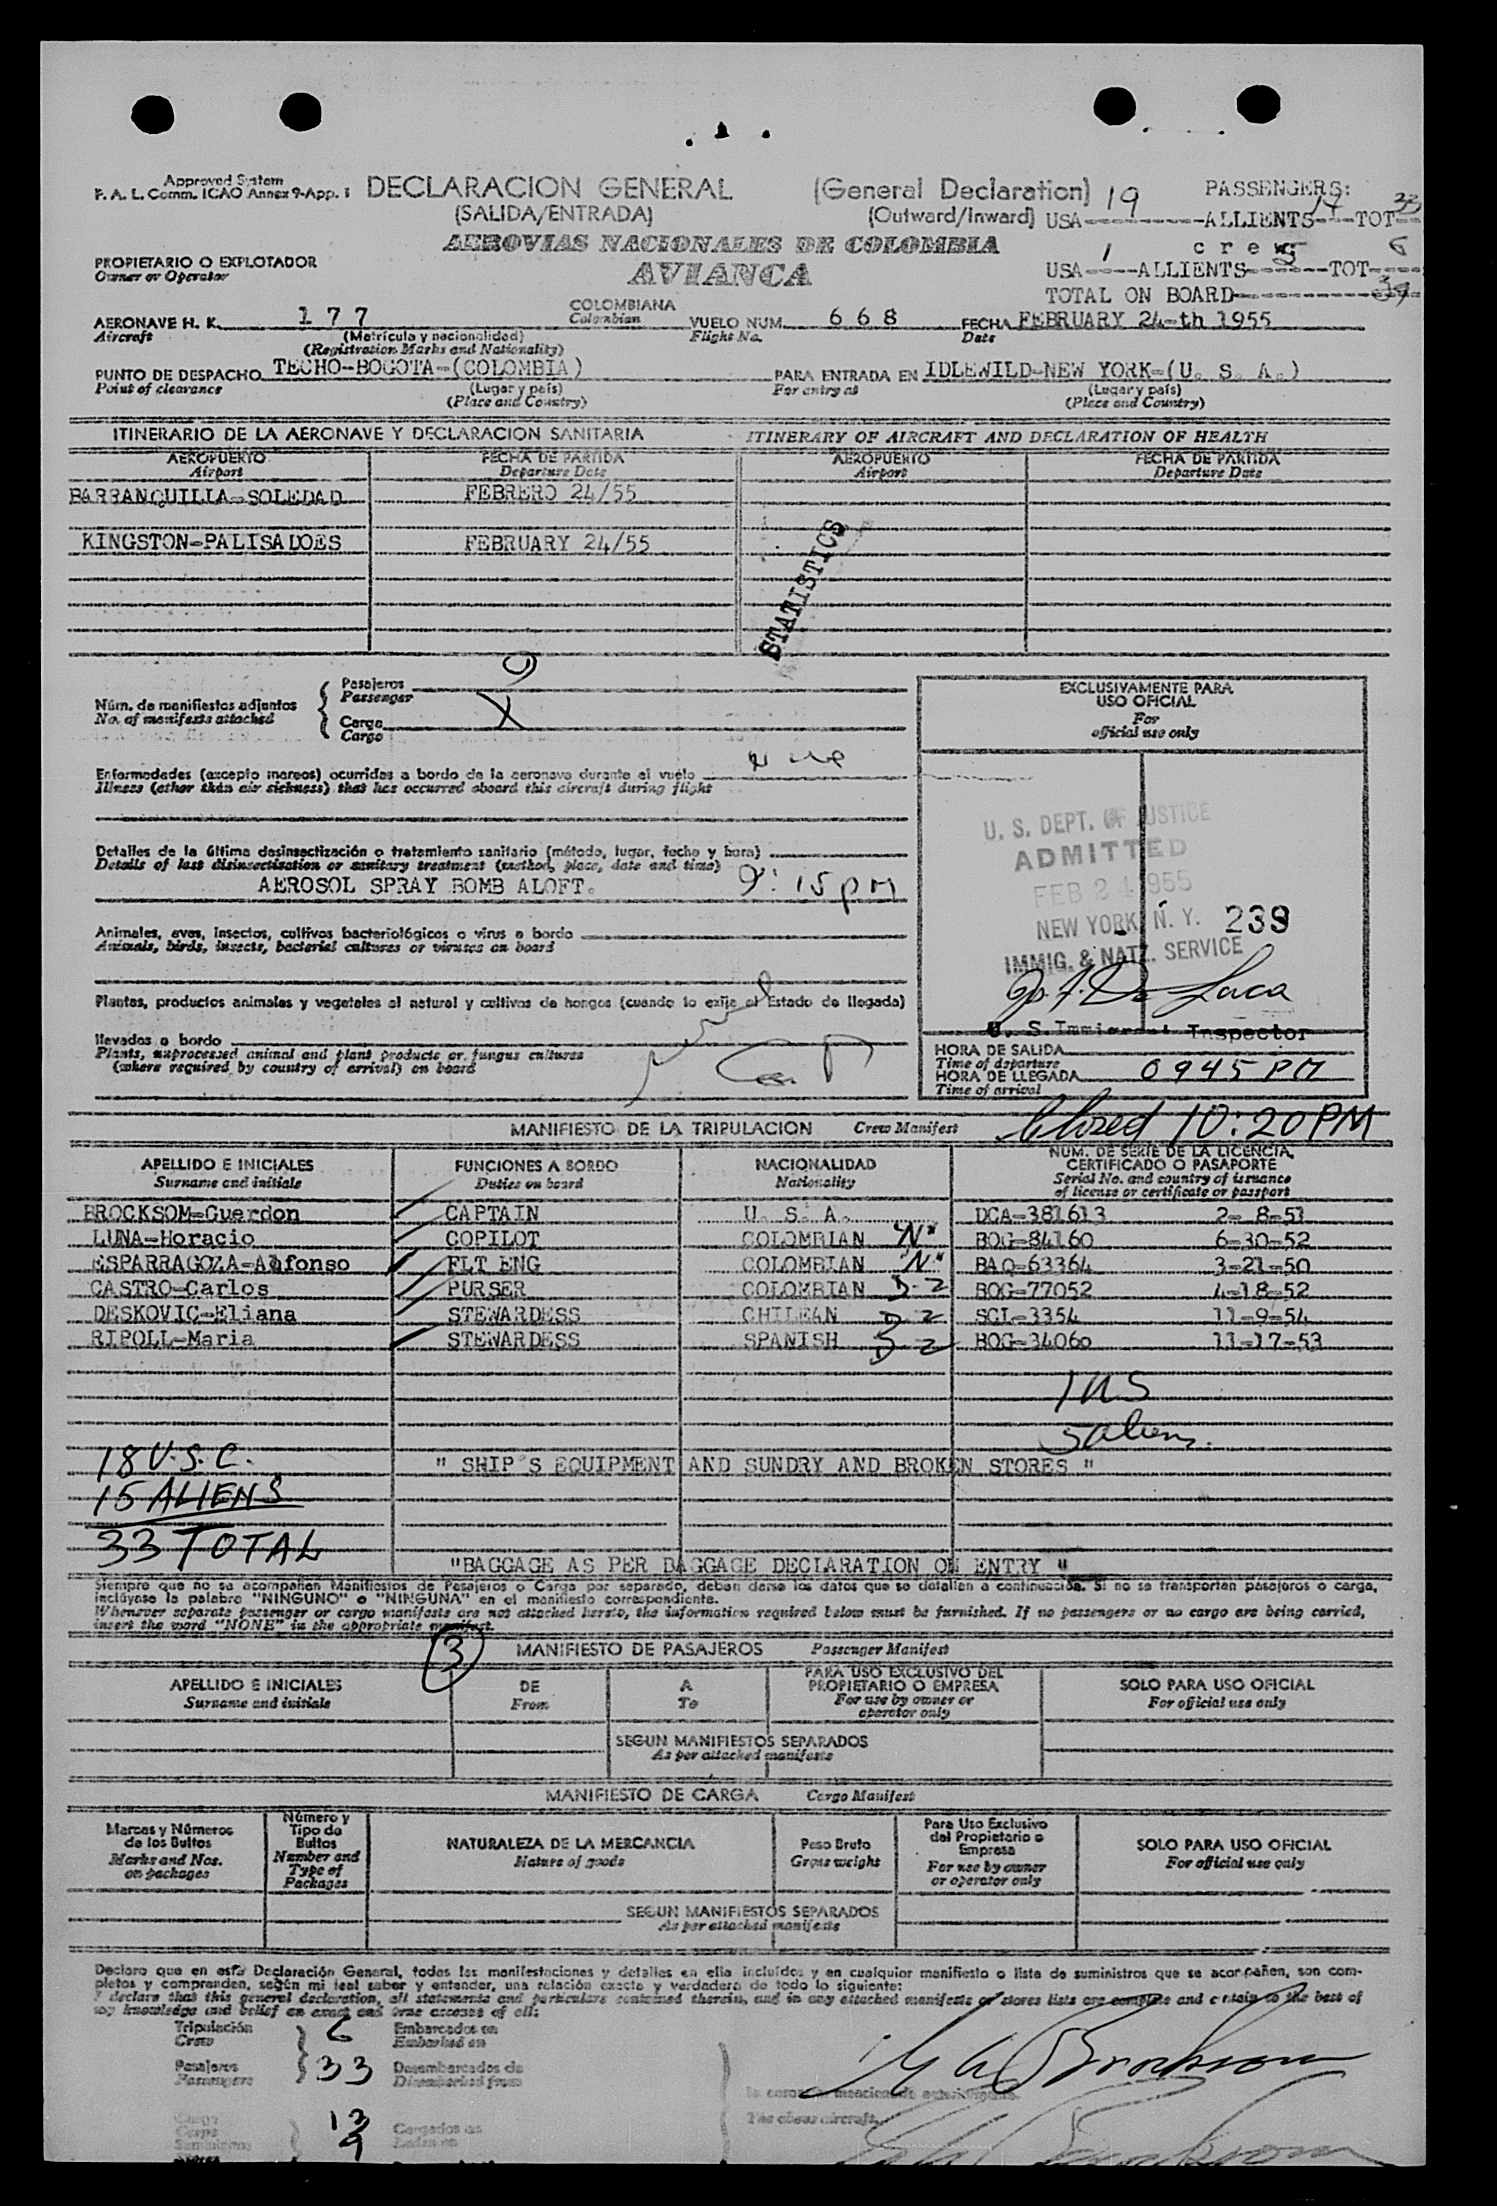 Approved System
F. A. L. Comm. ICAO Annex 9-App. 1
DECLARACION GENERAL (General Declaration)
(SALIDA/ENTRADA) (Outward/Inward)
PASSENGERS:
USA 19 ALLIENTS 14 TOT 33
AEROVIAS NACIONALES DE COLOMBIA
AVIANCA
crew
USA 1 ALLIENTS 5 TOT 6
TOTAL ON BOARD 39
PROPIETARIO O EXPLOTADOR
Owner or Operator
AERONAVE H. K. 177 COLOMBIANA VUELO NUM. 668 FECHA FEBRUARY 24-th 1955
Aircraft (Matrícula y nacionalidad) Colombian Flight No. Date
(Registration Marks and Nationality)
PUNTO DE DESPACHO TECHO-BOGOTA-(COLOMBIA) PARA ENTRADA EN IDLEWILD-NEW YORK-(U. S. A.)
Point of clearance (Lugar y país) For entry at (Lugar y país)
(Place and Country) (Place and Country)
ITINERARIO DE LA AERONAVE Y DECLARACION SANITARIA ITINERARY OF AIRCRAFT AND DECLARATION OF HEALTH
AEROPUERTO FECHA DE PARTIDA AEROPUERTO FECHA DE PARTIDA
Airport Departure Date Airport Departure Date
BARRANQUILLA-SOLEDAD FEBRERO 24/55
KINGSTON-PALISADOES FEBRUARY 24/55
STATISTICS
Núm. de manifiestos adjuntos
No. of manifests attached
Pasajeros
Passenger 9
Cargo
Cargo X
EXCLUSIVAMENTE PARA
USO OFICIAL
For
official use only
Enfermedades (excepto mareos) ocurridas a bordo de la aeronave durante el vuelo
Illness (other than air sickness) that has occurred aboard this aircraft during flight
Detalles de la última desinsectización o tratamiento sanitario (método, lugar, fecha y hora)
Details of last disinsectisation or sanitary treatment (method, place, date and time)
AEROSOL SPRAY BOMB ALOFT. 9:15 PM
Animales, aves, insectos, cultivos bacteriológicos o virus a bordo
Animals, birds, insects, bacterial cultures or viruses on board
Plantas, productos animales y vegetales al natural y cultivos de hongos (cuando lo exija el Estado de llegada)
llevados a bordo
Plants, unprocessed animal and plant products or fungus cultures
(where required by country of arrival) on board
U. S. DEPT. OF JUSTICE
ADMITTED
FEB 24 1955
NEW YORK, N. Y. 239
IMMIG. & NATZ. SERVICE
U. S. Immigrant Inspector
HORA DE SALIDA
Time of departure
HORA DE LLEGADA 0945 PM
Time of arrival
Closed 10:20 PM
MANIFIESTO DE LA TRIPULACION Crew Manifest
APELLIDO E INICIALES FUNCIONES A BORDO NACIONALIDAD NUM. DE SERIE DE LA LICENCIA, CERTIFICADO O PASAPORTE
Surname and initials Duties on board Nationality Serial No. and country of issuance of license or certificate or passport
BROCKSOM-Guerdon CAPTAIN U. S. A. DCA-381613 2- 8-51
LUNA-Horacio COPILOT COLOMBIAN "N" BOG-84160 6-30-52
ESPARRAGOZA-Alfonso FLT ENG COLOMBIAN "N" BAQ-63364 3-21-50
CASTRO-Carlos PURSER COLOMBIAN D-2 BOG-77052 4-18-52
DESKOVIC-Eliana STEWARDESS CHILEAN D-2 SCL-3354 11-9-54
RIPOLL-Maria STEWARDESS SPANISH D-2 BOG-34060 11-17-53
1 US
5 aliens.
18 U.S.C.
" SHIP'S EQUIPMENT AND SUNDRY AND BROKEN STORES "
15 ALIENS
33 TOTAL
"BAGGAGE AS PER BAGGAGE DECLARATION ON ENTRY "
Siempre que no se acompañen Manifiestos de Pasajeros o Carga por separado, deben darse los datos que se detallan a continuación. Si no se transportan pasajeros o carga,
inclúyase la palabra "NINGUNO" o "NINGUNA" en el manifiesto correspondiente.
Whenever separate passenger or cargo manifests are not attached hereto, the information required below must be furnished. If no passengers or no cargo are being carried,
insert the word "NONE" in the appropriate manifest.
3
MANIFIESTO DE PASAJEROS Passenger Manifest
APELLIDO E INICIALES DE A PARA USO EXCLUSIVO DEL PROPIETARIO O EMPRESA SOLO PARA USO OFICIAL
Surname and initials From To For use by owner or operator only For official use only
SEGUN MANIFIESTOS SEPARADOS
As per attached manifests
MANIFIESTO DE CARGA Cargo Manifest
Marcas y Números de los Bultos Número y Tipo de Bultos NATURALEZA DE LA MERCANCIA Peso Bruto Para Uso Exclusivo del Propietario o Empresa SOLO PARA USO OFICIAL
Marks and Nos. on packages Number and Type of Packages Nature of goods Gross weight For use by owner or operator only For official use only
SEGUN MANIFIESTOS SEPARADOS
As per attached manifests
Declaro que en esta Declaración General, todas las manifestaciones y detalles en ella incluídos y en cualquier manifiesto o lista de suministros que se acompañen, son com-
pletos y comprenden, según mi leal saber y entender, una relación exacta y verdadera de todo lo siguiente:
I declare that this general declaration, all statements and particulars contained therein, and in any attached manifests or stores lists are complete and contain to the best of
my knowledge and belief an exact and true account of all:
Tripulación 6 Embarcados en
Crew Embarked on
Pasajeros 33 Desembarcados de
Passengers Disembarked from
The above aircraft.
Carga 13 Cargados en
Cargo Laden on
Suministros 9